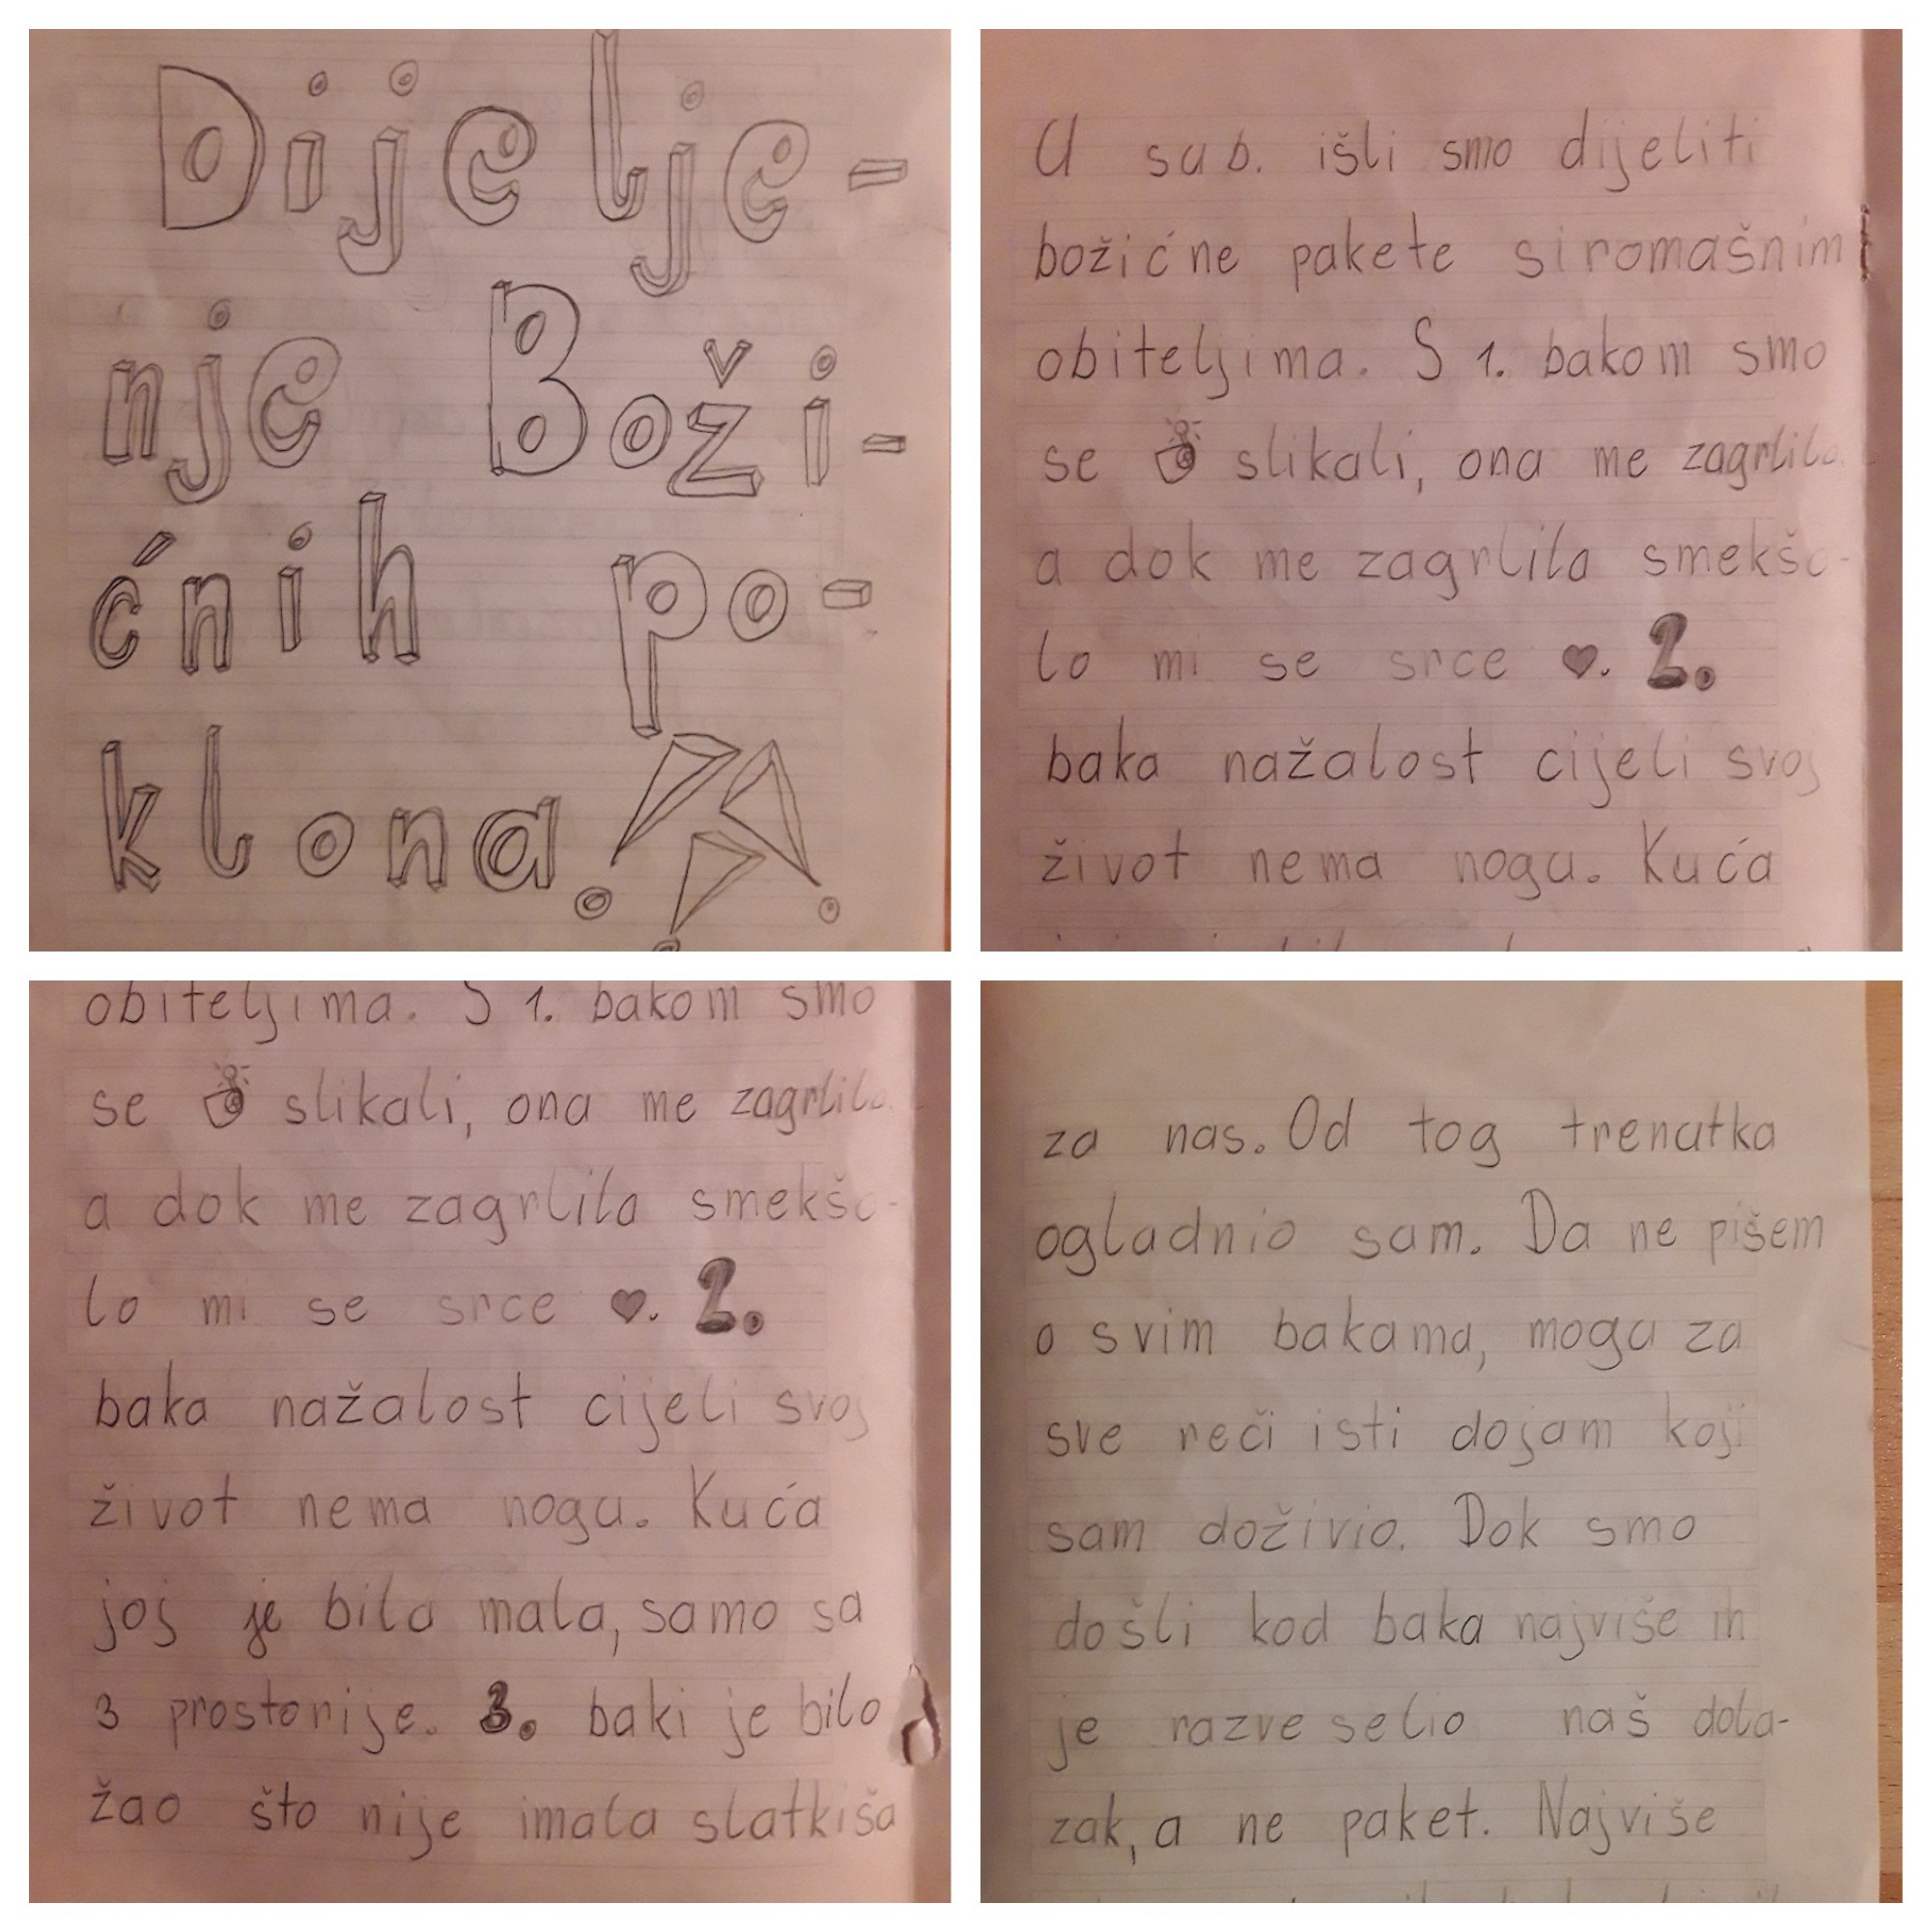 Dijelje-
nje Boži-
ćnih po-
klona.!!!
U sub. išli smo dijeliti
božićne pakete siromašnim
obiteljima. S 1. bakom smo
se slikali, ona me zagrlila
a dok me zagrlila smekša-
lo mi se srce ♥. 2.
baka nažalost cijeli svoj
život nema nogu. Kuća
obiteljima. S 1. bakom smo
se slikali, ona me zagrlila
a dok me zagrlila smekša-
lo mi se srce ♥. 2.
baka nažalost cijeli svoj
život nema nogu. Kuća
joj je bila mala, samo sa
3 prostorije. 3. baki je bilo
žao što nije imala slatkiša
za nas. Od tog trenutka
ogladnio sam. Da ne pišem
o svim bakama, mogu za
sve reči isti dojam koji
sam doživio. Dok smo
došli kod baka najviše ih
je razveselio naš dola-
zak, a ne paket. Najviše